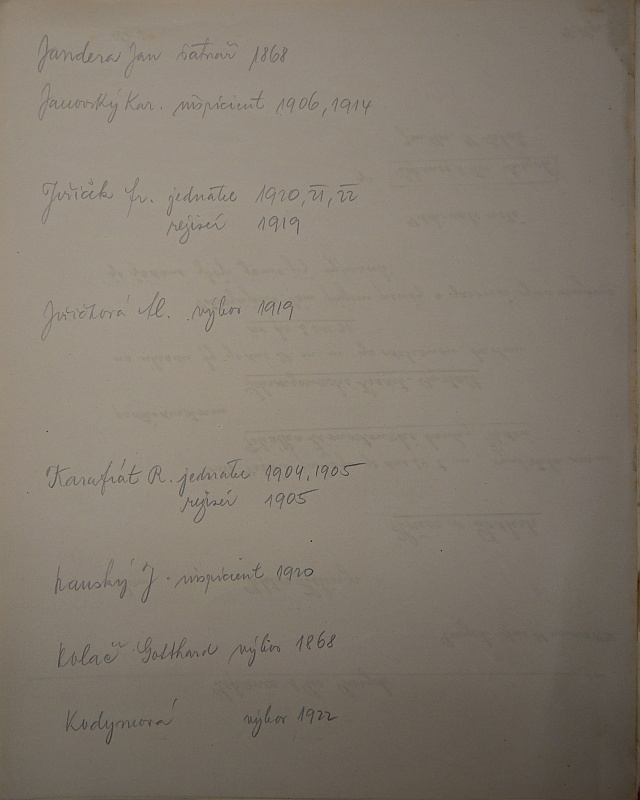 Jandera Jan šatnář 1868
Janovský Kar. inspicient 1906, 1914
Jiřiček fr. jednatel 1920, 21, 22
rejisér 1919
Jiřičková M. výbor 1919
Karafiát R. jednatel 1904, 1905
rejisér 1905
J. inspicient 1920
Kolář Gotthard výbor 1868
Kodymová výbor 1922